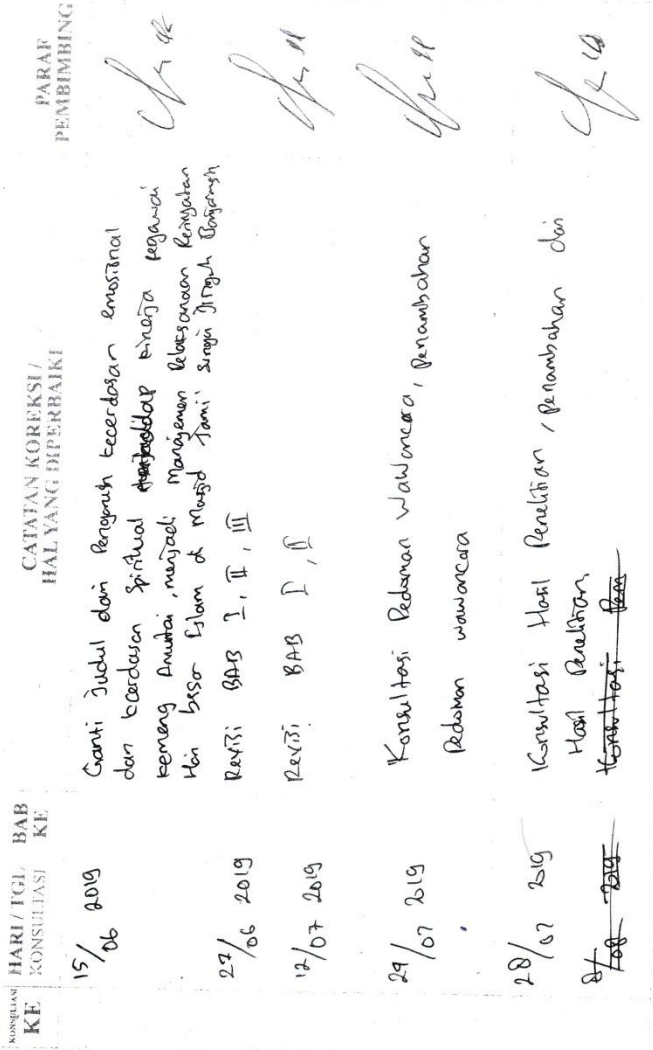 KONSULTASI KE
HARI / TGL KONSULTASI
BAB KE
CATATAN KOREKSI / HAL YANG DIPERBAIKI
PARAF PEMBIMBING
15/06 2019
Ganti Judul dari Pengaruh kecerdasan emosional
dan kecerdasan Spiritual terhadap kinerja pegawai
kemenag Amuntai, menjadi Manajemen Pelaksanaan Peringatan
Hari besar Islam di Masjid Jami' Sungai Jingah Banjarmasin
27/06 2019
Revisi BAB I, II, III
12/07 2019
Revisi BAB I, II
29/07 2019
Konsultasi Pedoman Wawancara, Penambahan
Pedoman wawancara
28/07 2019
Konsultasi Hasil Penelitian, Penambahan dari
Hasil Penelitian
8/08 2019
Konsultasi Pem